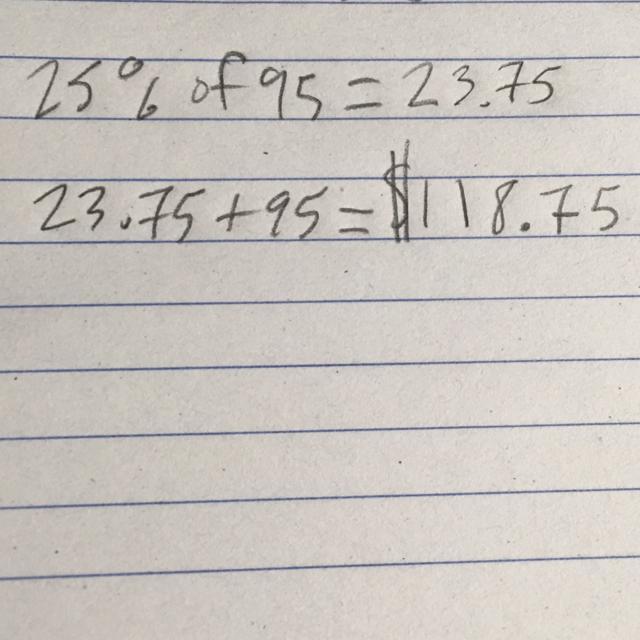 25% of 95 = 23.75
23.75 + 95 = $118.75